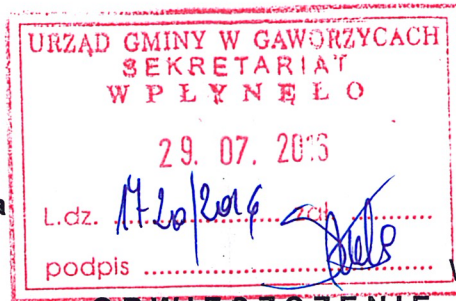 URZĄD GMINY W GAWORZYCACH
SEKRETARIAT
WPŁYNĘŁO
29. 07. 2016
L.dz. 1720/2016 zał.
podpis